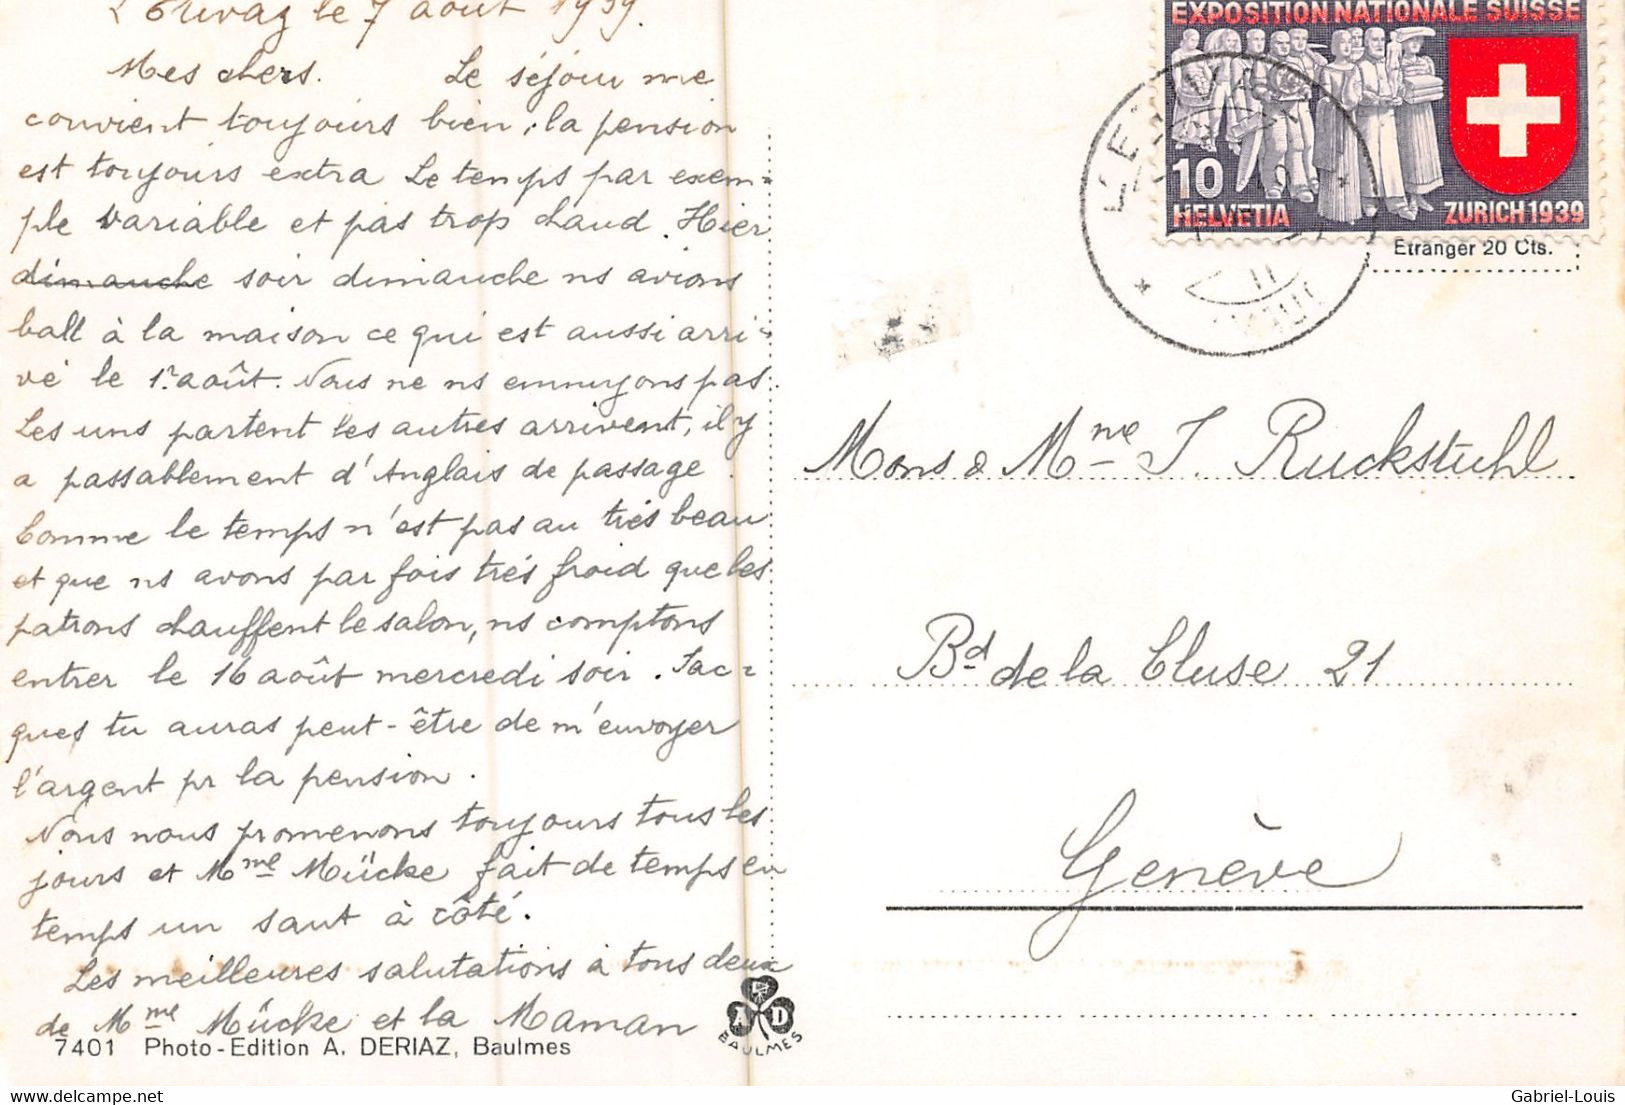 L'Etivaz le 7 août 1939.
Mes chers. Le séjour me
convient toujours bien, la pension
est toujours extra Le temps par exem-
ple variable et pas trop chaud. Hier
dimanche soir dimanche ns avions
ball à la maison ce qui est aussi arri-
vé le 1r août. Nous ne ns ennuyons pas.
Les uns partent les autres arrivent, il y
a passablement d'Anglais de passage
Comme le temps n'est pas au très beau
et que ns avons par fois très froid que les
patrons chauffent le salon, ns comptons
entrer le 16 août mercredi soir. Jac=
ques tu auras peut-être de m'envoyer
l'argent pr la pension.
Nous nous promenons toujours tous les
jours et Mme Mücke fait de temps en
temps un saut à côté.
Les meilleures salutations à tous deux
de Mme Mücke et la Maman
7401 Photo-Edition A. DERIAZ, Baulmes
A D
BAULMES
EXPOSITION NATIONALE SUISSE
10
HELVETIA
ZURICH 1939
Etranger 20 Cts.
Mons & Mme J. Ruckstuhl
Bd de la Cluse 21
Genève
delcampe.net
Gabriel-Louis